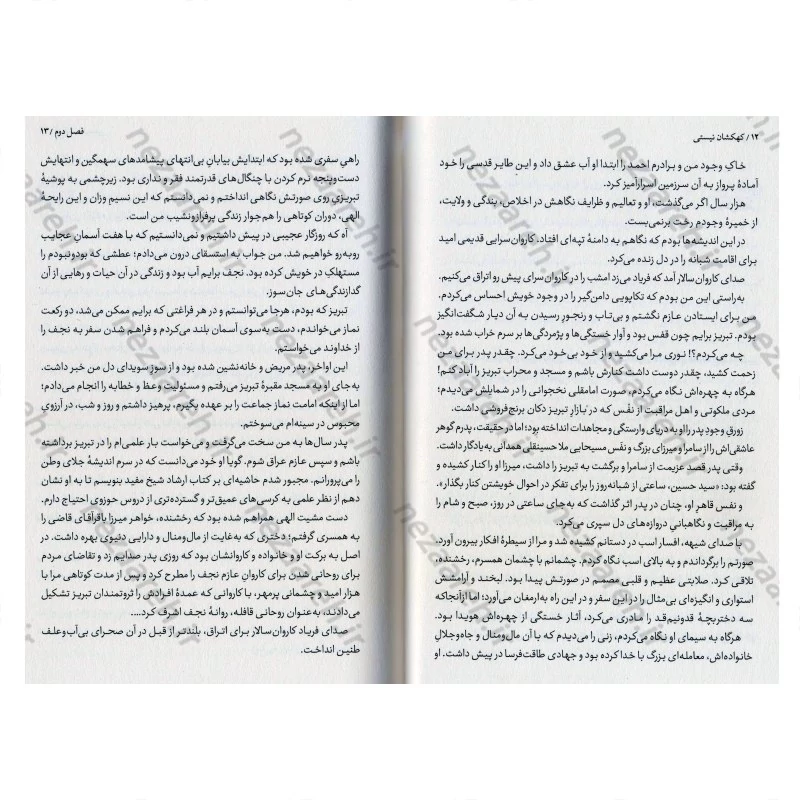 ۱۲ / کهکشان نیستی
خاکِ وجود من و برادرم احمد را ابتدا او آب عشق داد و این طایر قدسی را خود
آمادۀ پرواز به آن سرزمین اسرارآمیز کرد.
هزار سال اگر می‌گذشت، او و تعالیم و ظرایف نگاهش در اخلاص، بندگی و ولایت،
از خمیرۀ وجودم رخت برنمی‌بست.
در این اندیشه‌ها بودم که نگاهم به دامنۀ تپه‌ای افتاد. کاروان‌سرایی قدیمی امید
برای اقامت شبانه را در دل زنده می‌کرد.
صدای کاروان‌سالار آمد که فریاد می‌زد امشب را در کاروان‌سرای پیش رو اتراق می‌کنیم.
به‌راستی این من بودم که تکاپویی دامن‌گیر را در وجود خویش احساس می‌کردم.
من برای ایستادن عازم نگشتم و بی‌تاب و رنجور رسیدن به آن دیار شگفت‌انگیز
بودم. تبریز برایم چون قفس بود و آوار خستگی‌ها و پژمردگی‌ها بر سرم خراب شده بود.
چه می‌کردم؟! نوری مرا می‌کشید و از خود بی‌خود می‌کرد. چقدر پدر برای من
زحمت کشید، چقدر دوست داشت کنارش باشم و مسجد و محراب تبریز را آباد کنم!
هرگاه به چهره‌اش نگاه می‌کردم، صورت امامقلی نخجوانی را در شمایلش می‌دیدم؛
مردی ملکوتی و اهل مراقبت از نفْس که در بازارِ تبریز دکان برنج‌فروشی داشت.
زورقِ وجودِ پدر را او به دریای وارستگی و مجاهدات انداخته بود؛ اما در حقیقت، پدرم گوهر
عاشقی‌اش را از سامرا و میرزای بزرگ و نفَس مسیحایی ملاحسینقلی همدانی به‌یادگار داشت.
وقتی پدر قصد عزیمت از سامرا و برگشت به تبریز را داشت، میرزا او را کنار کشیده و
گفته بود: «سید حسین، ساعتی از شبانه‌روز را برای تفکر در احوال خویشتن کنار بگذار».
و نفْس قاهرِ او، چنان در پدر اثر گذاشت که به‌جای ساعتی در روز، صبح و شام را
به مراقبت و نگاهبانیِ دروازه‌های دل سپری می‌کرد.
با صدای شیهه، افسار اسب در دستانم کشیده شد و مرا از سیطرۀ افکار بیرون آورد.
صورتم را برگرداندم و به بالای اسب نگاه کردم. چشمانم با چشمان همسرم، رخشنده،
تلاقی کرد. صلابتی عظیم و قلبی مصمم در صورتش پیدا بود. لبخند و آرامشش
استواری و انگیزه‌ای بی‌مثال را در این سفر و در این راه به‌ارمغان می‌آورد؛ اما ازآنجاکه
سه دختربچۀ قدونیم‌قد را مادری می‌کرد، آثار خستگی از چهره‌اش هویدا بود.
هرگاه به سیمای او نگاه می‌کردم، زنی را می‌دیدم که با آن مال‌ومنال و جاه‌وجلالِ
خانواده‌اش، معامله‌ای بزرگ با خدا کرده بود و جهادی طاقت‌فرسا در پیش داشت. او
فصل دوم / ۱۳
راهیِ سفری شده بود که ابتدایش بیابانِ بی‌انتهای پیشامدهای سهمگین و انتهایش
دست‌وپنجه نرم کردن با چنگال‌های قدرتمند فقر و نداری بود. زیرچشمی به پوشیۀ
تبریزیِ روی صورتش نگاهی انداختم و نمی‌دانستم که این نسیم وزان و این رایحۀ
الهی، دوران کوتاهی را هم‌جوار زندگی پرفرازونشیب من است.
آه که روزگار عجیبی در پیش داشتیم و نمی‌دانستیم که با هفت آسمانِ عجایب
روبه‌رو خواهیم شد. من جواب به استسقای درون می‌دادم؛ عطشی که بودونبودم را
مستهلکِ در خویش کرده بود. نجف برایم آب بود و زندگی در آن حیات و رهایی از آن
گدازندگی‌های جان‌سوز.
تبریز که بودم، هرجا می‌توانستم و در هر فراغتی که برایم ممکن می‌شد، دو رکعت
نماز می‌خواندم، دست به‌سوی آسمان بلند می‌کردم و فراهم شدن سفر به نجف را
از خداوند می‌خواستم.
این اواخر، پدر مریض و خانه‌نشین شده بود و از سوزِ سویدای دل من خبر داشت.
به جای او به مسجد مقبرۀ تبریز می‌رفتم و مسئولیت وعظ و خطابه را انجام می‌دادم؛
اما از اینکه امامت نماز جماعت را بر عهده بگیرم، پرهیز داشتم و روز و شب، در آرزوی
محبوس در سینه‌ام می‌سوختم.
پدر سال‌ها به من سخت می‌گرفت و می‌خواست بار علمی‌ام را در تبریز برداشته
باشم و سپس عازم عراق شوم. گویا او خود می‌دانست که در سرم اندیشۀ جلای وطن
را می‌پرورانم. مجبور شدم حاشیه‌ای بر کتاب ارشاد شیخ مفید بنویسم تا به او نشان
دهم از نظر علمی به کرسی‌های عمیق‌تر و گسترده‌تری از دروس حوزوی احتیاج دارم.
دست مشیت الهی همراهم شده بود که رخشنده، خواهر میرزا باقرآقای قاضی را
به همسری گرفتم؛ دختری که به‌غایت از مال‌ومنال و دارایی دنیوی بهره داشت. در
اصل به برکت او و خانواده و کاروانشان بود که روزی پدر صدایم زد و تقاضای مردم
برای روحانی شدن برای کاروانِ عازم نجف را مطرح کرد و پس از مدت کوتاهی مرا با
هزار امید و چشمانی پرمهر، با کاروانی که عمدۀ افرادش را ثروتمندان تبریز تشکیل
می‌دادند، به‌عنوان روحانی قافله، روانۀ نجف اشرف کرد....
صدای فریاد کاروان‌سالار برای اتراق، بلندتر از قبل در آن صحرای بی‌آب‌وعلف
طنین انداخت.
nezaareh.ir